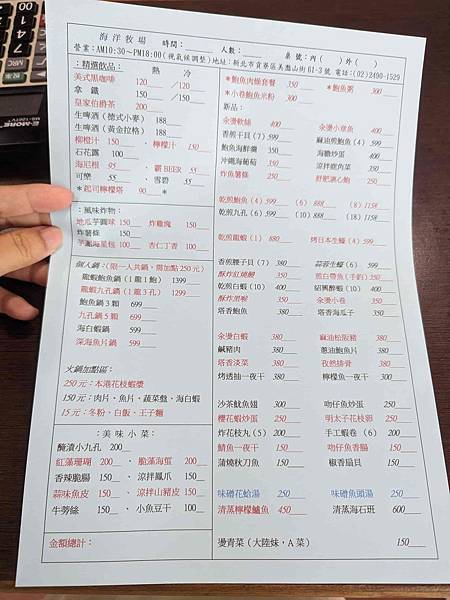 海洋牧場 時間： 人數： 桌號：內( )外( )
營業:AM10:30~PM18:00(視氣候調整)地址:新北市貢寮區美艷山街61-3號 電話:(02)2490-1529
：精選飲品： 熱 冷
美式黑咖啡 120 /120
拿 鐵 150 /150
皇家伯爵茶 200
生啤酒(德式小麥) 188
生啤酒(黃金拉格) 188
柳橙汁 150 檸檬汁 150
石花露 100
海尼根 95 霸BEER 55
可樂 55 雪碧 55
*起司檸檬塔 90 *
：風味炸物：
地瓜芋圓球 150 炸雞塊 150
炸薯條 150
芋泥海星包 100 杏仁丁香 100
個人鍋：(限一人共鍋，需加點250元)
龍蝦鮑魚鍋(1龍1鮑) 1399
龍蝦九孔鍋(1龍3孔) 1299
鮑魚鍋3顆 699
九孔鍋5顆 699
海白蝦鍋 599
深海魚片鍋 599
火鍋加點區：
250元：本港花枝蝦漿
150元：肉片、魚片、蔬菜盤、海白蝦
15元：冬粉、白飯、王子麵
：美味小菜：
醃漬小九孔 200
紅藻珊瑚 200 、脆藻海蜇 200
香辣脆腸 150 、涼拌鳳爪 150
蒜味魚皮 150 、涼拌山豬皮 150
牛蒡絲 150 、小魚豆干 100
金額總計：
*鮑魚肉燥套餐 350 *鮑魚粥 300
*小卷鮑魚米粉 300
新品：
永燙軟絲 400 永燙小章魚 400
香煎干貝(7) 599 麻油煎鮑魚(4) 599
鮑魚海鮮羹 350 海膽炒蛋 400
沖繩海葡萄 350 涼拌鹿角菜 350
炸魚薯條 250 舒肥溏心鮑 250
乾煎鮑魚(4) 599 (6) 888 (18) 1158
乾煎九孔(6) 599 (10) 888 (15) 1158
乾煎龍蝦(1) 880 烤日本生蠔(4) 599
香煎腰子貝(7) 380 蒜蓉生蠔(6) 599
酥炸紅燒鰻 350 煎白帶魚(手釣) 350
乾煎白蝦(10) 400 紹興醉蝦(10) 400
酥炸黑喉 350 永燙小卷 350
塔香鮑魚 380 塔香海瓜子 350
永燙白蝦 380 麻油松阪豬 380
鹹豬肉 380 蔥油鮑魚片 380
塔香淡菜 380 孜然排骨 380
烤透抽一夜干 380 檸檬魚一夜干 300
沙茶魷魚翅 300 吻仔魚炒蛋 250
櫻花蝦炒蛋 250 明太子花枝卵 250
炸花枝丸(5) 200 手工蝦卷(6) 200
鯖魚一夜干 150 吻仔魚香腸 150
蒲燒秋刀魚 150 椒香扇貝 150
味噌花蛤湯 250 味噌魚頭湯 250
清蒸檸檬鱸魚 450 清蒸海石斑 600
燙青菜(大陸妹，A菜) 150